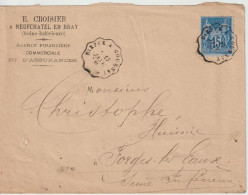 E. CROISIER
A NEUFCHATEL EN BRAY
(Seine-Inférieure)
AGENCE FINANCIÈRE
COMMERCIALE
ET D'ASSURANCES
15
Monsieur
Christophe
Huissier
Forges les Eaux
Seine Inférieure